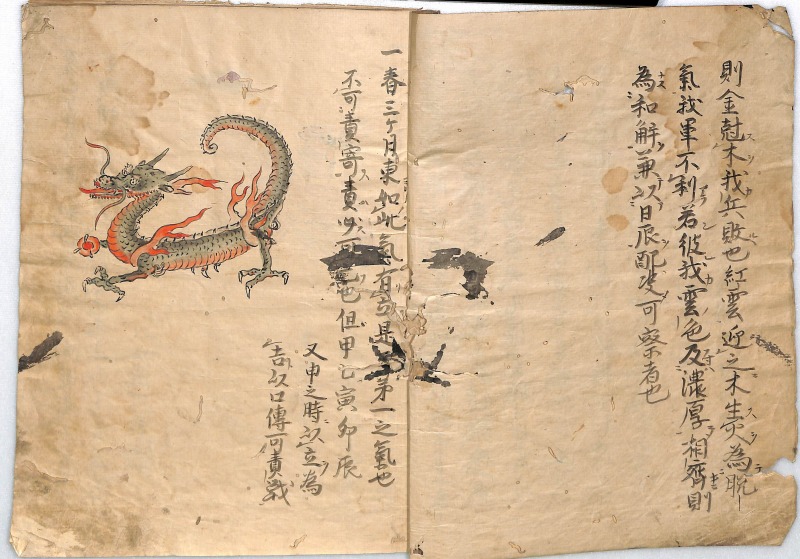 則金尅木我兵敗也紅雲迎之木生火為脱
氣我軍不利若彼我雲色及濃厚相齊則
為和解兼以日辰配
可察者也
一春三ヶ月東如此氣有
是
第一之氣也
不可責寄責必
也但甲乙寅卯辰
又申之時以立為
吉以口傳可責戦